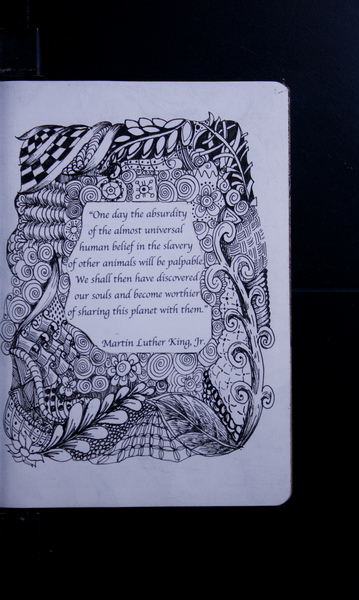 "One day the absurdity
of the almost universal
human belief in the slavery
of other animals will be palpable.
We shall then have discovered
our souls and become worthier
of sharing this planet with them."
Martin Luther King, Jr.